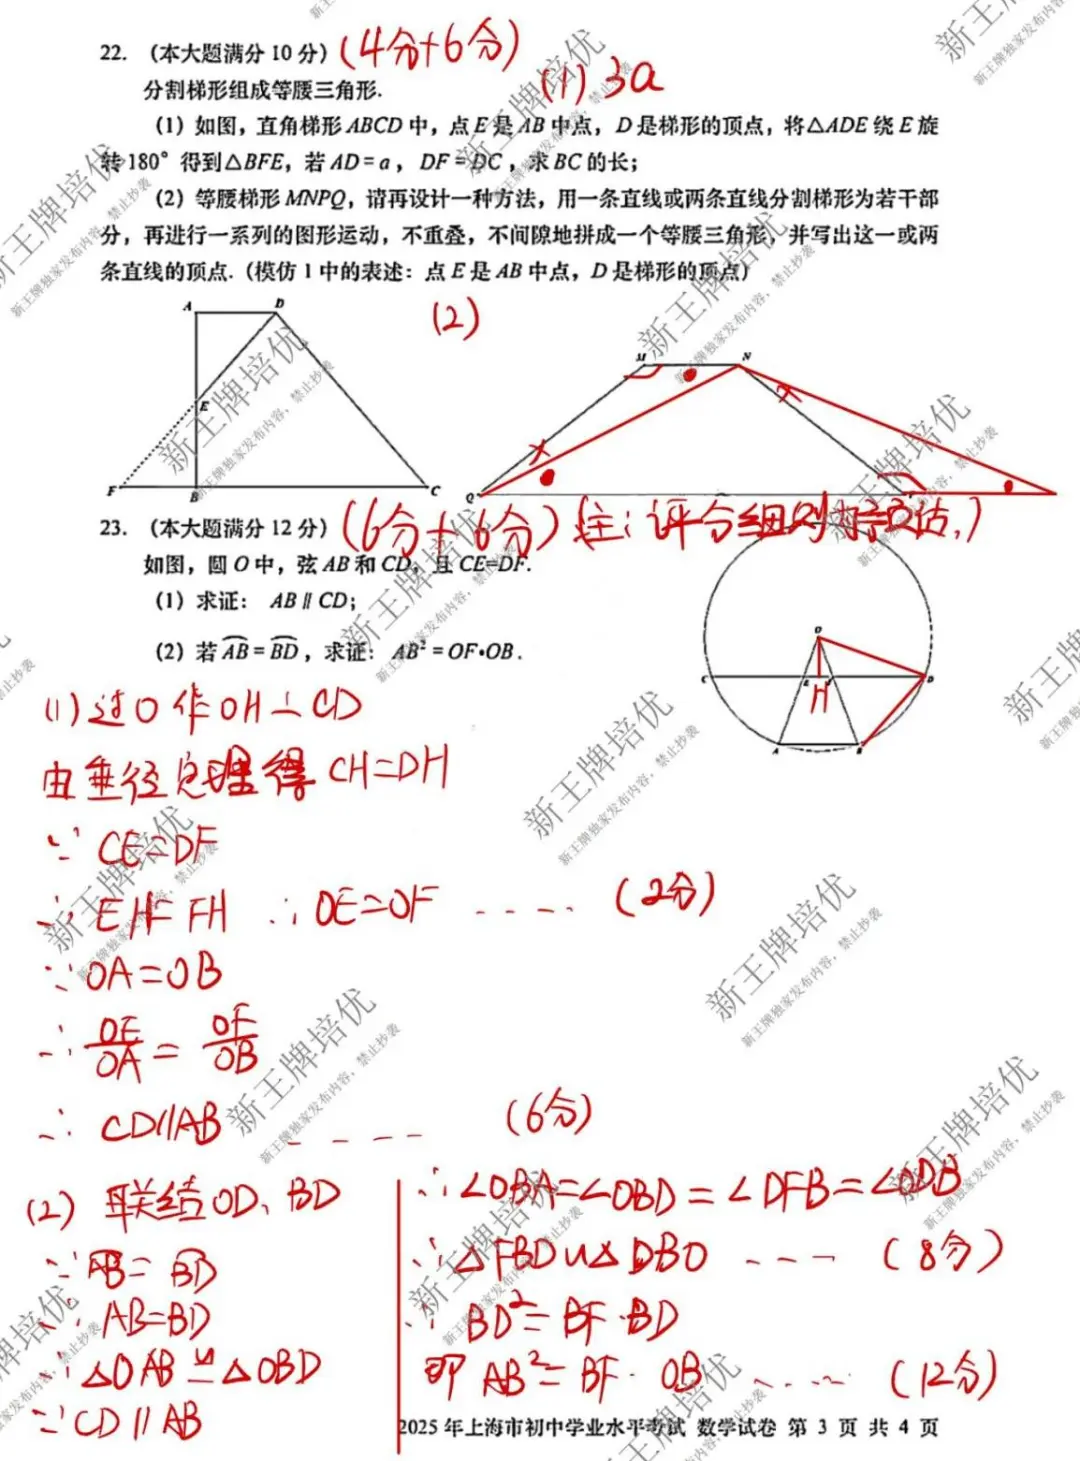 22. (本大题满分 10 分) (4分+6分)
分割梯形组成等腰三角形. (1) 3a
(1) 如图，直角梯形 ABCD 中，点 E 是 AB 中点，D 是梯形的顶点，将△ADE 绕 E 旋
转 180° 得到△BFE，若 AD = a ，DF = DC ，求 BC 的长；
(2) 等腰梯形 MNPQ，请再设计一种方法，用一条直线或两条直线分割梯形为若干部
分，再进行一系列的图形运动，不重叠，不间隙地拼成一个等腰三角形，并写出这一或两
条直线的顶点.（模仿 1 中的表述：点 E 是 AB 中点，D 是梯形的顶点）
A D
(2)
M N
E
F B C
Q
23. (本大题满分 12 分) (6分+6分) (注：评分细则内部评估,)
如图，圆 O 中，弦 AB 和 CD，且 CE=DF.
(1) 求证： AB ∥ CD；
(2) 若 AB = BD ，求证： AB² = OF•OB .
O
C E H D
A B
(1) 过 O 作 OH⊥CD
由垂径定理得 CH=DH
∵ CE=DF
∴ EH=FH ∴ OE=OF ---- (2分)
∵ OA=OB
∴ OE/OA = OF/OB
∴ CD//AB ---- (6分)
(2) 联结OD、BD
∵ AB=BD
∴ AB=BD
∴ △OAB≌△OBD
∵ CD//AB
∴ ∠OBA=∠OBD=∠DFB=∠ODB
∴ △FBD∽△DBO --- (8分)
∴ BD²=BF·BD
即 AB²=BF·OB ---- (12分)
2025 年上海市初中学业水平考试 数学试卷 第 3 页 共 4 页
新王牌培优
新王牌独家发布内容，禁止抄袭